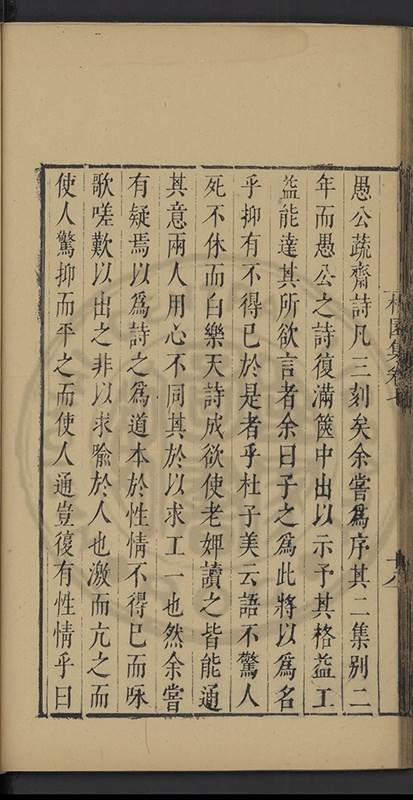 愚公蔬齋詩凡三刻矣余嘗爲序其二集别二
年而愚公之詩復滿篋中出以示予其格益工
益能達其所欲言者余曰子之爲此將以爲名
乎抑有不得已於是者乎杜子美云語不驚人
死不休而白樂天詩成欲使老嫗讀之皆能通
其意兩人用心不同其於以求工一也然余嘗
有疑焉以爲詩之爲道本於性情不得已而咏
歌嗟歎以出之非以求喻於人也激而亢之而
使人驚抑而平之而使人通豈復有性情乎曰